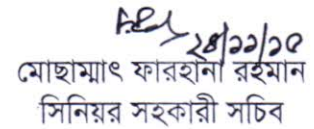 ২৪/১১/১৫
মোছাম্মাৎ ফারহানা রহমান
সিনিয়র সহকারী সচিব